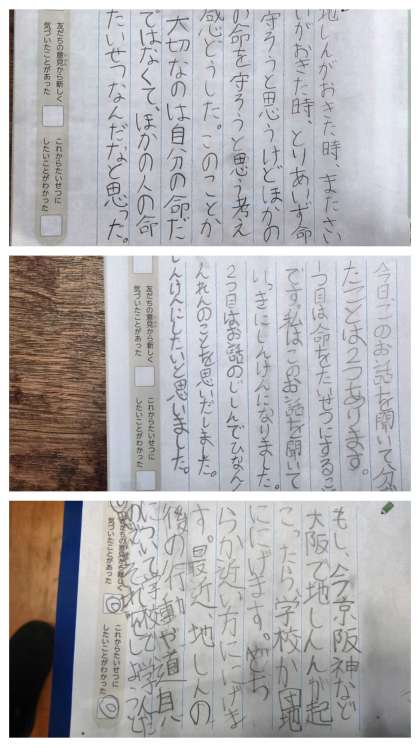 地しんがおきた時、またさい
いがおきた時、とりあいず命
守ろうと思うけどほかの
の命を守ろうと思う考え
感どうした。このことか
大切なのは自分の命だ
ではなくて、ほかの人の命
たいせつなんだなと思った。
友だちの意見から新しく
気づいたことがあった
これからたいせつに
したいことがわかった
今日、このお話を聞いて分
たことは2つあります。
1つ目は命をたいせつにするこ
です。私はこのお話を聞いて
いっきにしんけんになりました。
2つ目はお話のじしんでひなん
んれんのことを思いだしました。
しんけんにしたいと思いました。
友だちの意見から新しく
気づいたことがあった
これからたいせつに
したいことがわかった
もし、今京阪神など
大阪で地しんが起
こったら、学校か団地
ににげます。どち
らか近い方ににげま
す。最近、地しんの
後の行動や道具
について学
友だちの意見から新しく
気づいたことがあった
これからたいせつに
したいことがわかった